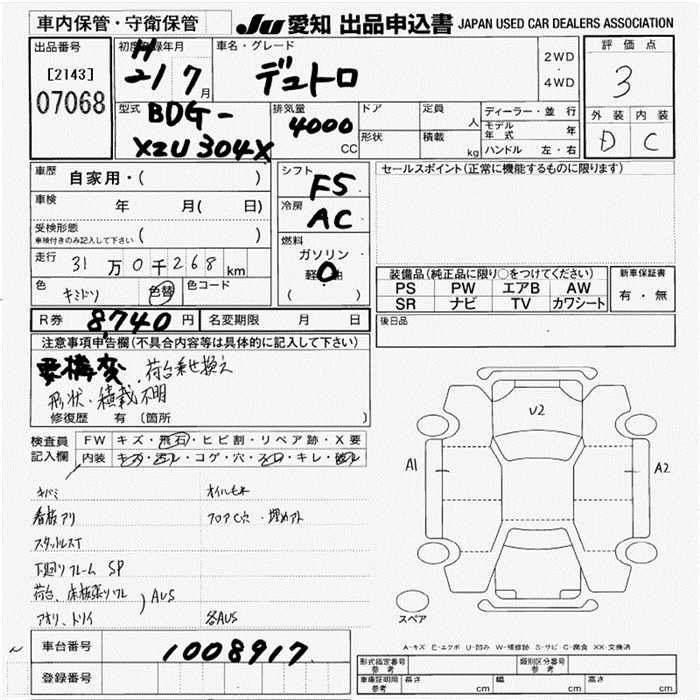 車内保管・守衛保管
JU 愛知 出品申込書 JAPAN USED CAR DEALERS ASSOCIATION
出品番号
[2143]
07068
初度登録年月
H 21 7 月
車名・グレード
デュトロ
2WD
・
4WD
評価点
3
外装 内装
D C
型式
BDG-
XZU304X
排気量
4000 CC
ドア
形状
定員 人
積載 kg
ディーラー・並行
モデル年式 年
ハンドル 左・右
車歴 自家用・( )
車検 年 月( 日)
受検形態
車検付きのみ記入して下さい ( )
走行 31万0千268km
色 キミドリ 色替 色コード
シフト F5
冷房 AC
燃料
ガソリン
軽油
( )
セールスポイント(正常に機能するものに限ります)
装備品(純正品に限り○をつけてください)
PS PW エアB AW
SR ナビ TV カワシート
新車保証書
有・無
R券 8,740円 名変期限 月 日
後日品
注意事項申告欄(不具合内容等は具体的に記入して下さい)
要構変. 荷台乗せ換え
形状・積載不明
修復歴 有 〔箇所 〕
検査員記入欄
FW キズ・飛石・ヒビ割・リペア跡・X要
内装 キズ・汚レ・コゲ・穴・スレ・キレ・破レ
キバミ オイルモレ
看板アリ フロアC穴・埋めアト
スタッドレスT
下廻りフレーム SP
荷台、床板張りワレ
アオリ、トリイ )AUS
各AUS
V2
A1
A2
スペア
A-キズ E-エクボ U-凹み W-補修跡 S-サビ C-腐食 XX-交換済
車台番号 1008917.
登録番号
形式指定番号 参考
類別区分番号 参考
車庫証明用 参考 長さ cm 幅 cm 高さ cm